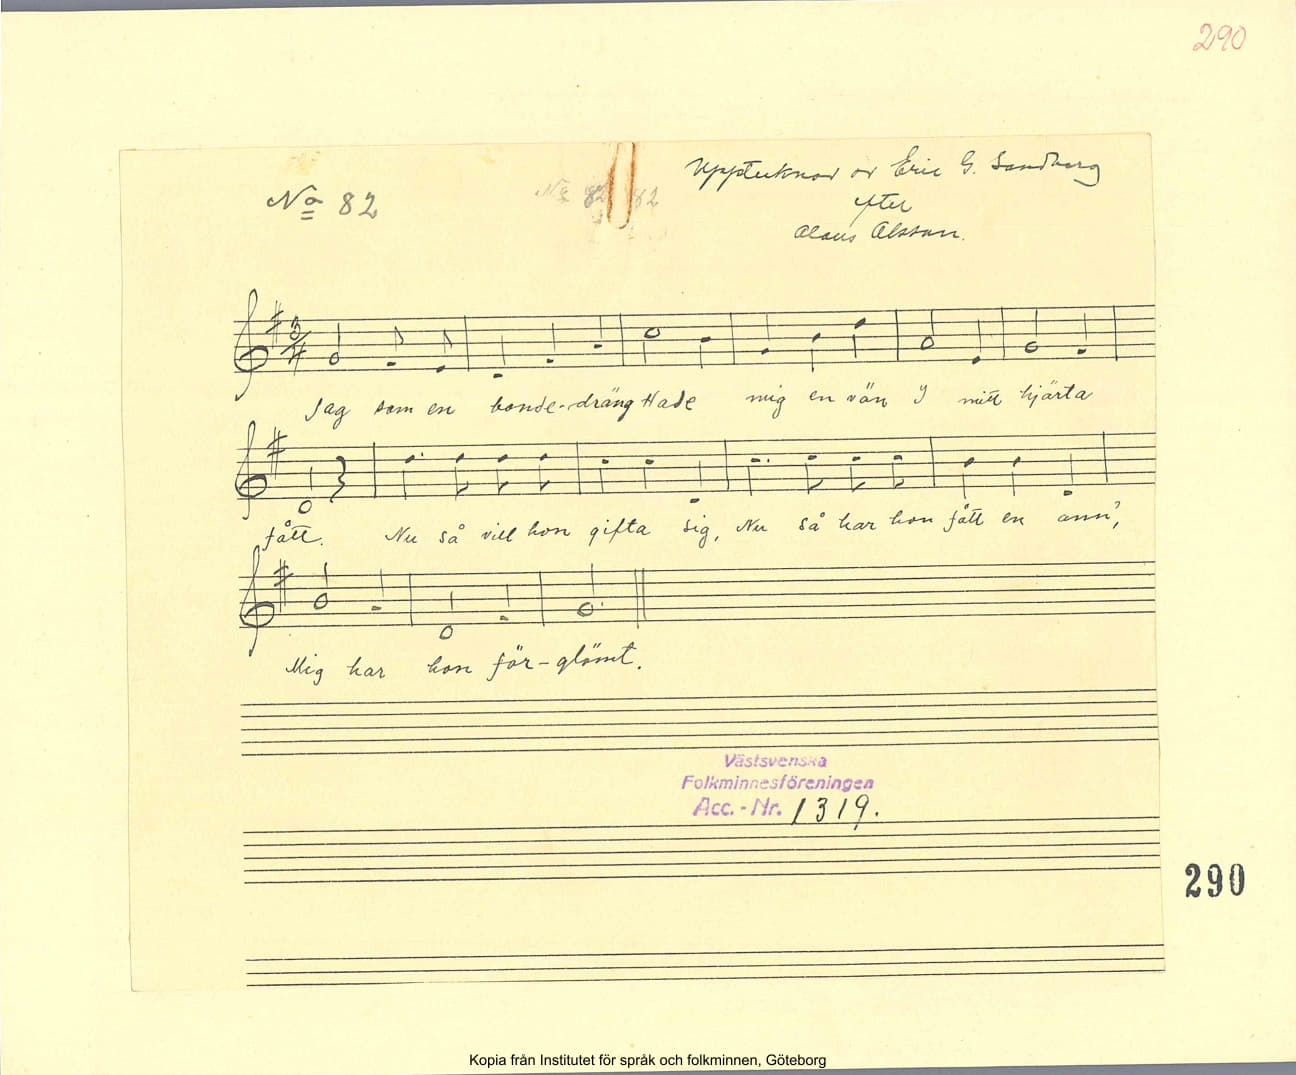 290
No 82
No 82 82
Upptecknad av Eric G. Sandberg
efter
Claus Olsson.
3/4
Jag som en bonde-dräng Hade mig en vän I mitt hjärta
fått. Nu så vill hon gifta sig, Nu så har hon fått en ann',
Mig har hon för-glömt.
Västsvenska
Folkminnesföreningen
Acc.-Nr. 1319.
290
Kopia från Institutet för språk och folkminnen, Göteborg